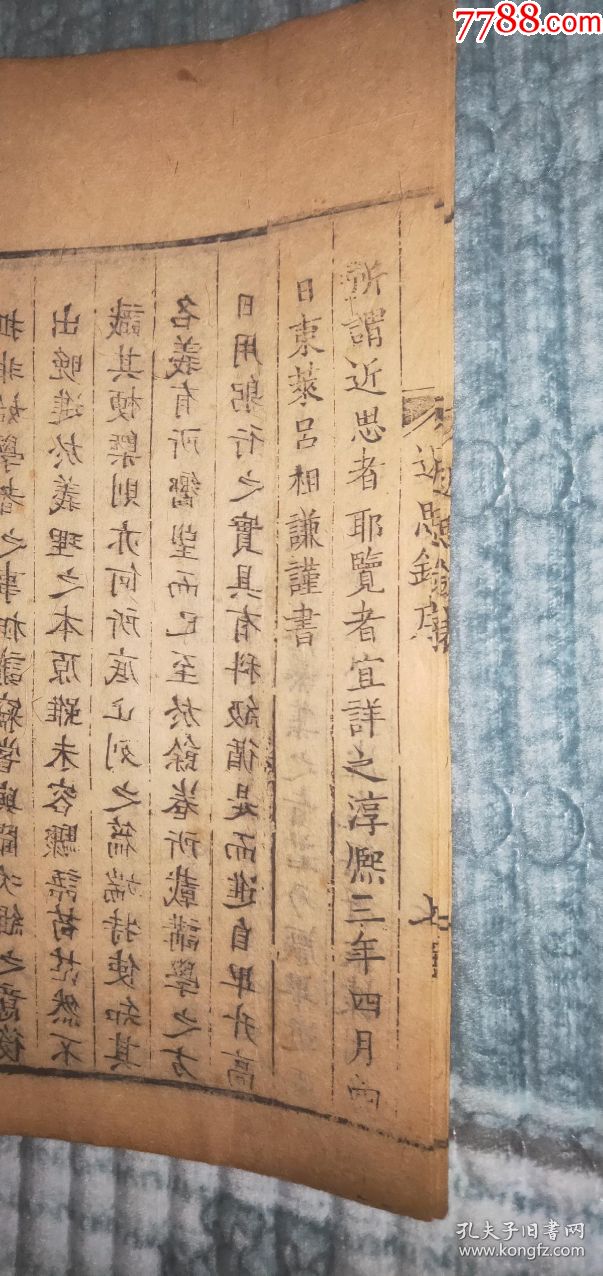 7788.com
近思錄序
七
所謂近思者耶覽者宜詳之淳熙三年四月四
日東萊呂祖謙謹書
抵非始學者之事祖謙竊嘗與聞次緝之意後
出晚進於義理之本原雖未容驟語苟茫然不
識其梗槩則亦何所底止列之篇端特使知其
名義有所嚮望而已至於餘卷所載講學之方
日用躬行之實具有科級循是而進自卑升高
孔夫子旧书网
www.kongfz.com